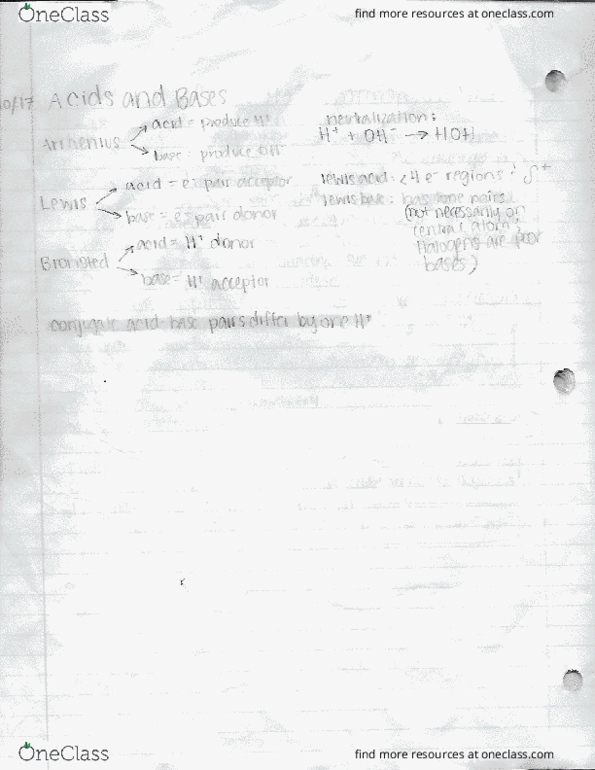 OneClass
find more resources at oneclass.com
10/17 Acids and Bases
Arrhenius
acid = produce H⁺
base = produce OH⁻
neutralization:
H⁺ + OH⁻ → HOH
Lewis
acid = e⁻ pair acceptor
base = e⁻ pair donor
lewis acid: <4 e⁻ regions; δ⁺
lewis base: has lone pairs
(not necessarily on
central atom,
Halogens are poor
bases)
Bronsted
acid = H⁺ donor
base = H⁺ acceptor
conjugate acid base pairs differ by one H⁺
OneClass
find more resources at oneclass.com